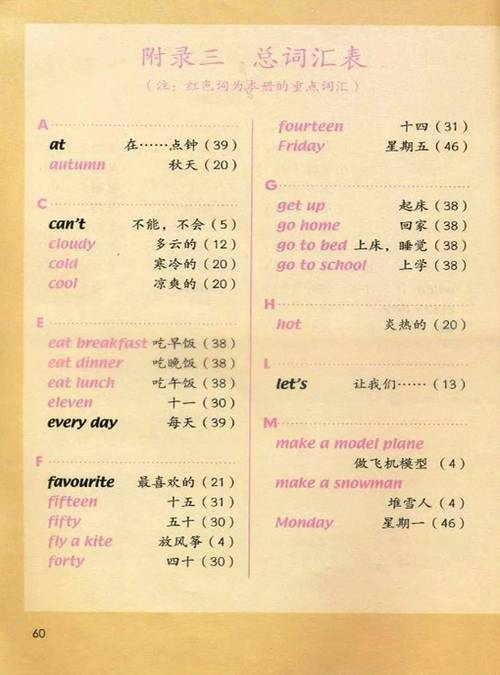 附录三 总词汇表
(注：红色词为本册的重点词汇)
A
at 在……点钟(39)
autumn 秋天(20)
C
can't 不能，不会(5)
cloudy 多云的(12)
cold 寒冷的(20)
cool 凉爽的(20)
E
eat breakfast 吃早饭(38)
eat dinner 吃晚饭(38)
eat lunch 吃午饭(38)
eleven 十一(30)
every day 每天(39)
F
favourite 最喜欢的(21)
fifteen 十五(31)
fifty 五十(30)
fly a kite 放风筝(4)
forty 四十(30)
fourteen 十四(31)
Friday 星期五(46)
G
get up 起床(38)
go home 回家(38)
go to bed 上床，睡觉(38)
go to school 上学(38)
H
hot 炎热的(20)
L
let's 让我们……(13)
M
make a model plane
做飞机模型 (4)
make a snowman
堆雪人(4)
Monday 星期一(46)
60